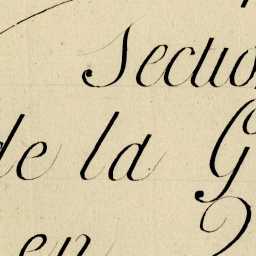 Sectio
de la G
en 2